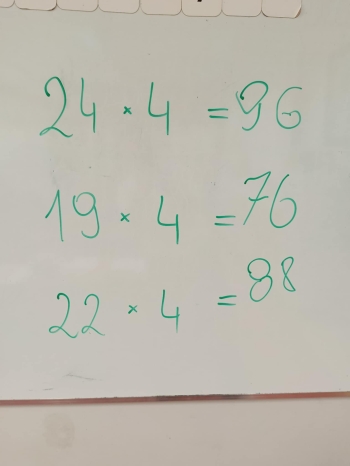 24 × 4 = 96
19 × 4 = 76
22 × 4 = 88